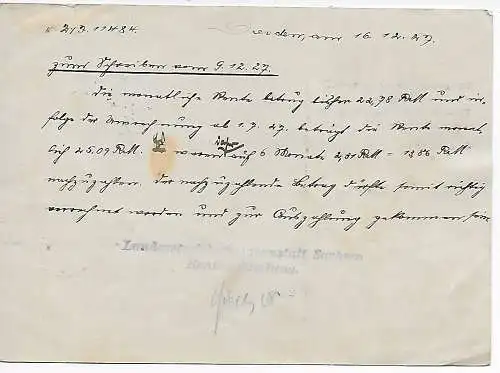 213.11484. Dresden, am 16.12.27.
zum Schreiben vom 9.12.27.
Die monatliche Rente betrug bisher 22,78 RM und in-
folge der Umrechnung ab 1.7.27. beträgt die Rente monat-
lich 25,09 RM. waren auf 6 Monate 2,31 RM = 13,86 RM
nachzuzahlen. Der nachzuzahlende Betrag dürfte somit richtig
verrechnet worden und zur Auszahlung gekommen sein.
Landesversicherungsanstalt Sachsen